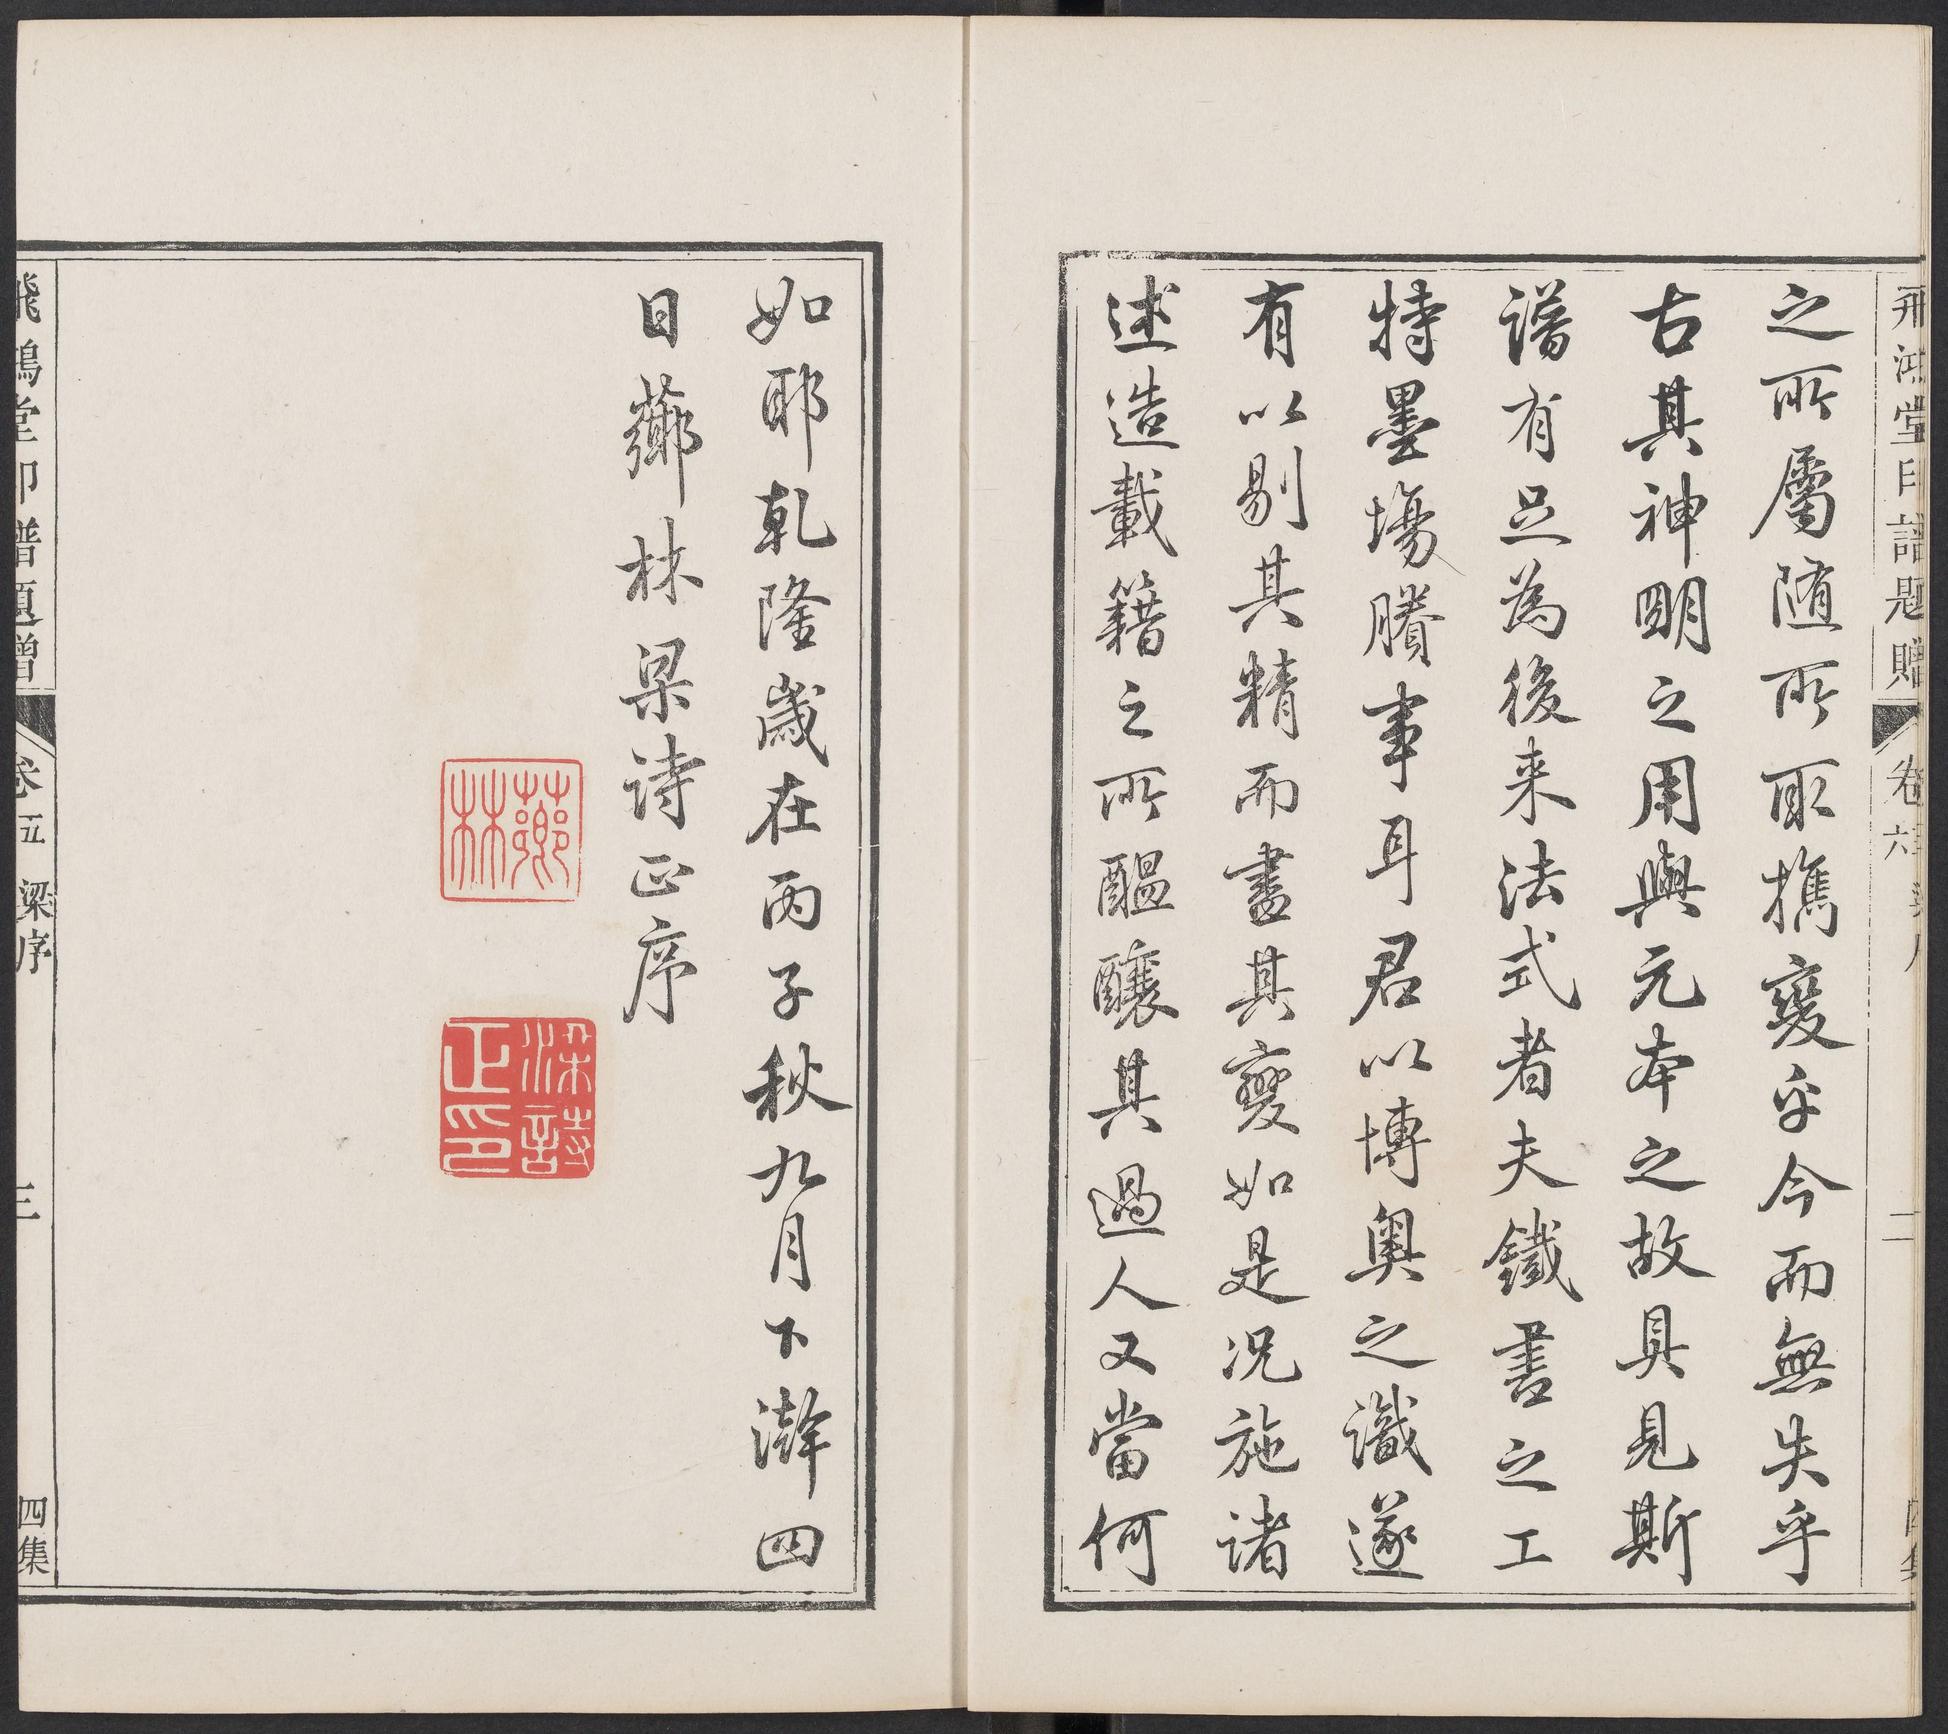 飛鴻堂印譜題贈 卷 二
之所屬隨所取攜變乎今而無失乎
古其神明之用與元本之故具見斯
譜有足為後来法式者夫鐵書之工
特墨塲賸事耳君以博奧之識遂
有以剔其精而盡其變如是况施諸
述造載籍之所醖釀其過人又當何
如耶乾隆歲在丙子秋九月下澣四
日薌林梁诗正序
薌林
梁詩正印
飛鴻堂印譜題贈 卷五 梁序 三 四集